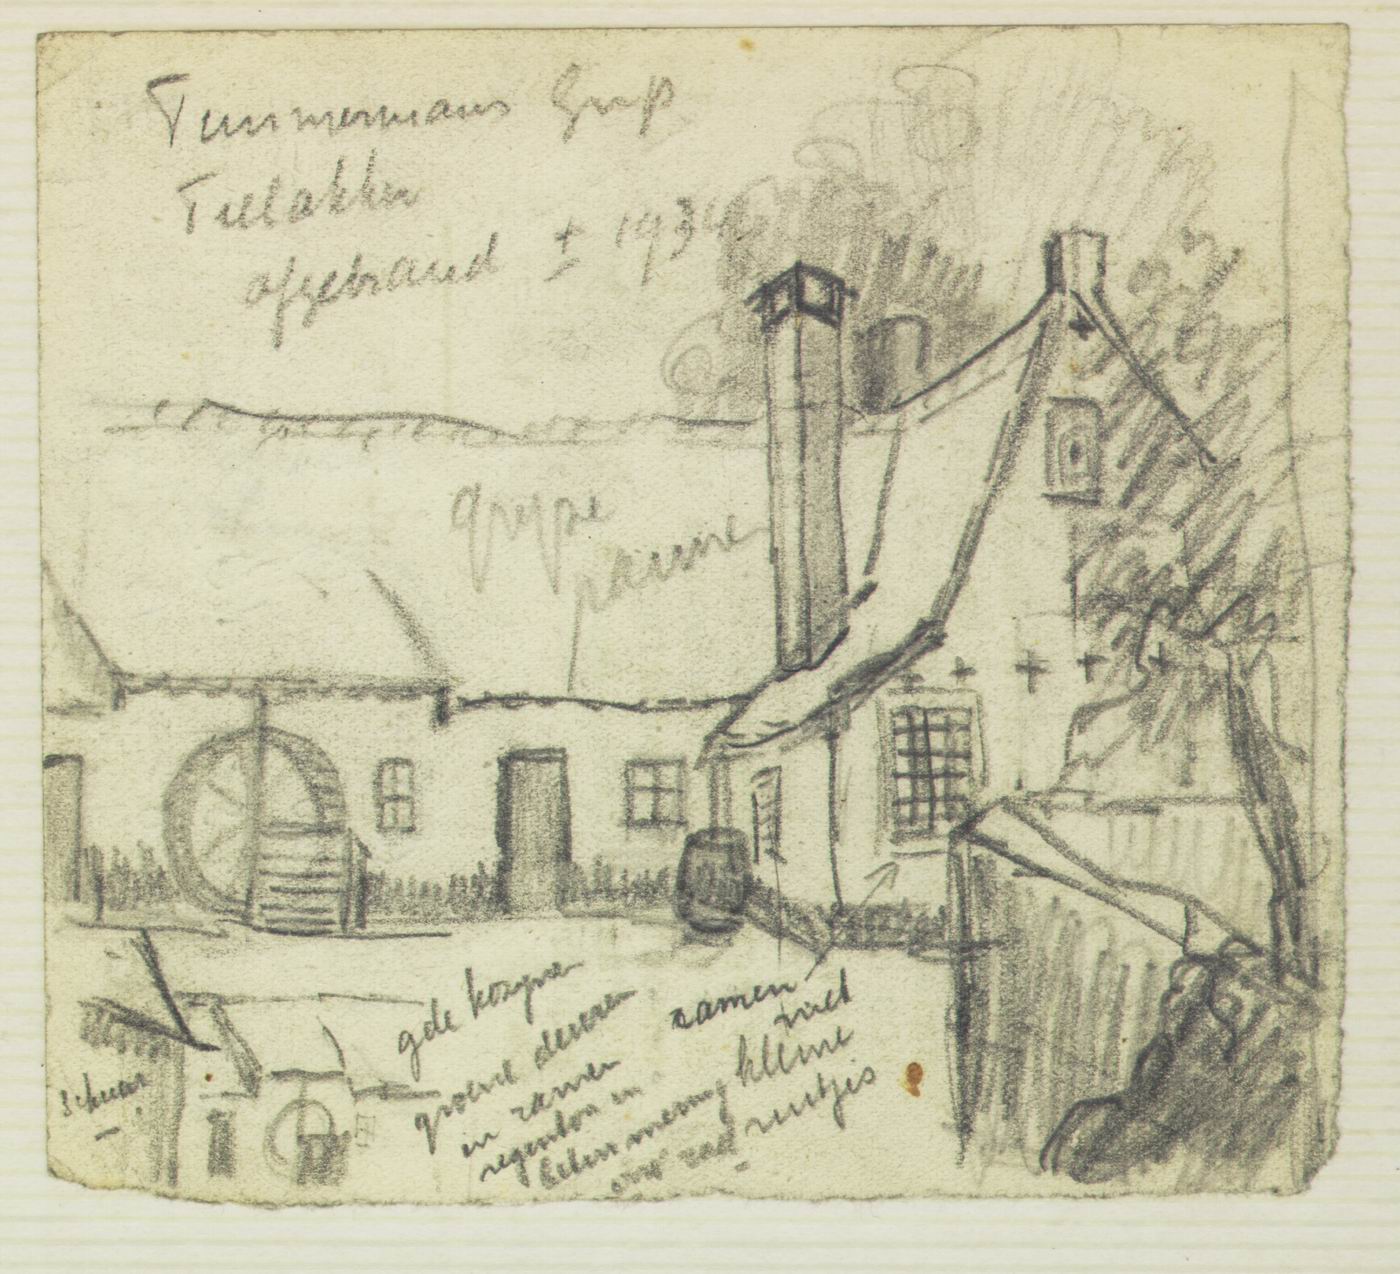 Timmermans Gijs
Tielakker
afgebrand ± 1934
grijze
pannen
gele kozijnen
groene deuren
in ramen
regenton en
ramen
met
kleine
ruitjes
schuur